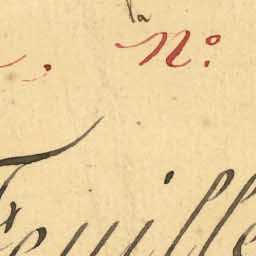 la
N.º
Feuille